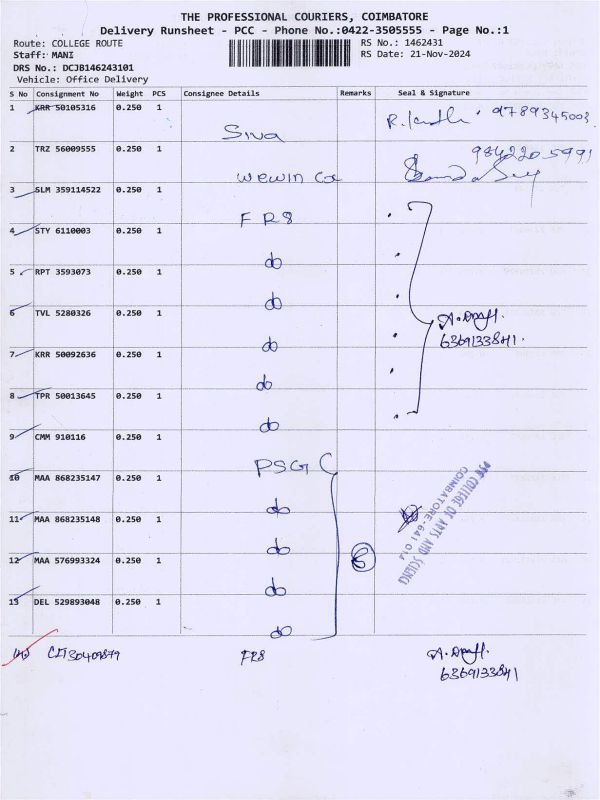 THE PROFESSIONAL COURIERS, COIMBATORE
Delivery Runsheet - PCC - Phone No.:0422-3505555 - Page No.:1
Route: COLLEGE ROUTE RS No.: 1462431
Staff: MANI RS Date: 21-Nov-2024
DRS No.: DCJB146243101
Vehicle: Office Delivery
S No Consignment No Weight PCS Consignee Details Remarks Seal & Signature
1 KRR 50105316 0.250 1 9789345003
Siva
2 TRZ 56009555 0.250 1 9842205991
wewin
3 SLM 359114522 0.250 1
FR8
4 STY 6110003 0.250 1
do
5 RPT 3593073 0.250 1
do
6 TVL 5280326 0.250 1
do 6369133841
7 KRR 50092636 0.250 1
do
8 TPR 50013645 0.250 1
do
9 CMM 910116 0.250 1
PSG C
10 MAA 868235147 0.250 1
do
11 MAA 868235148 0.250 1
do
PSG COLLEGE OF ARTS AND SCIENCE
COIMBATORE-641 014
12 MAA 576993324 0.250 1
do
13 DEL 529893048 0.250 1
do
14 CIT 30409879 FR8
6369133841